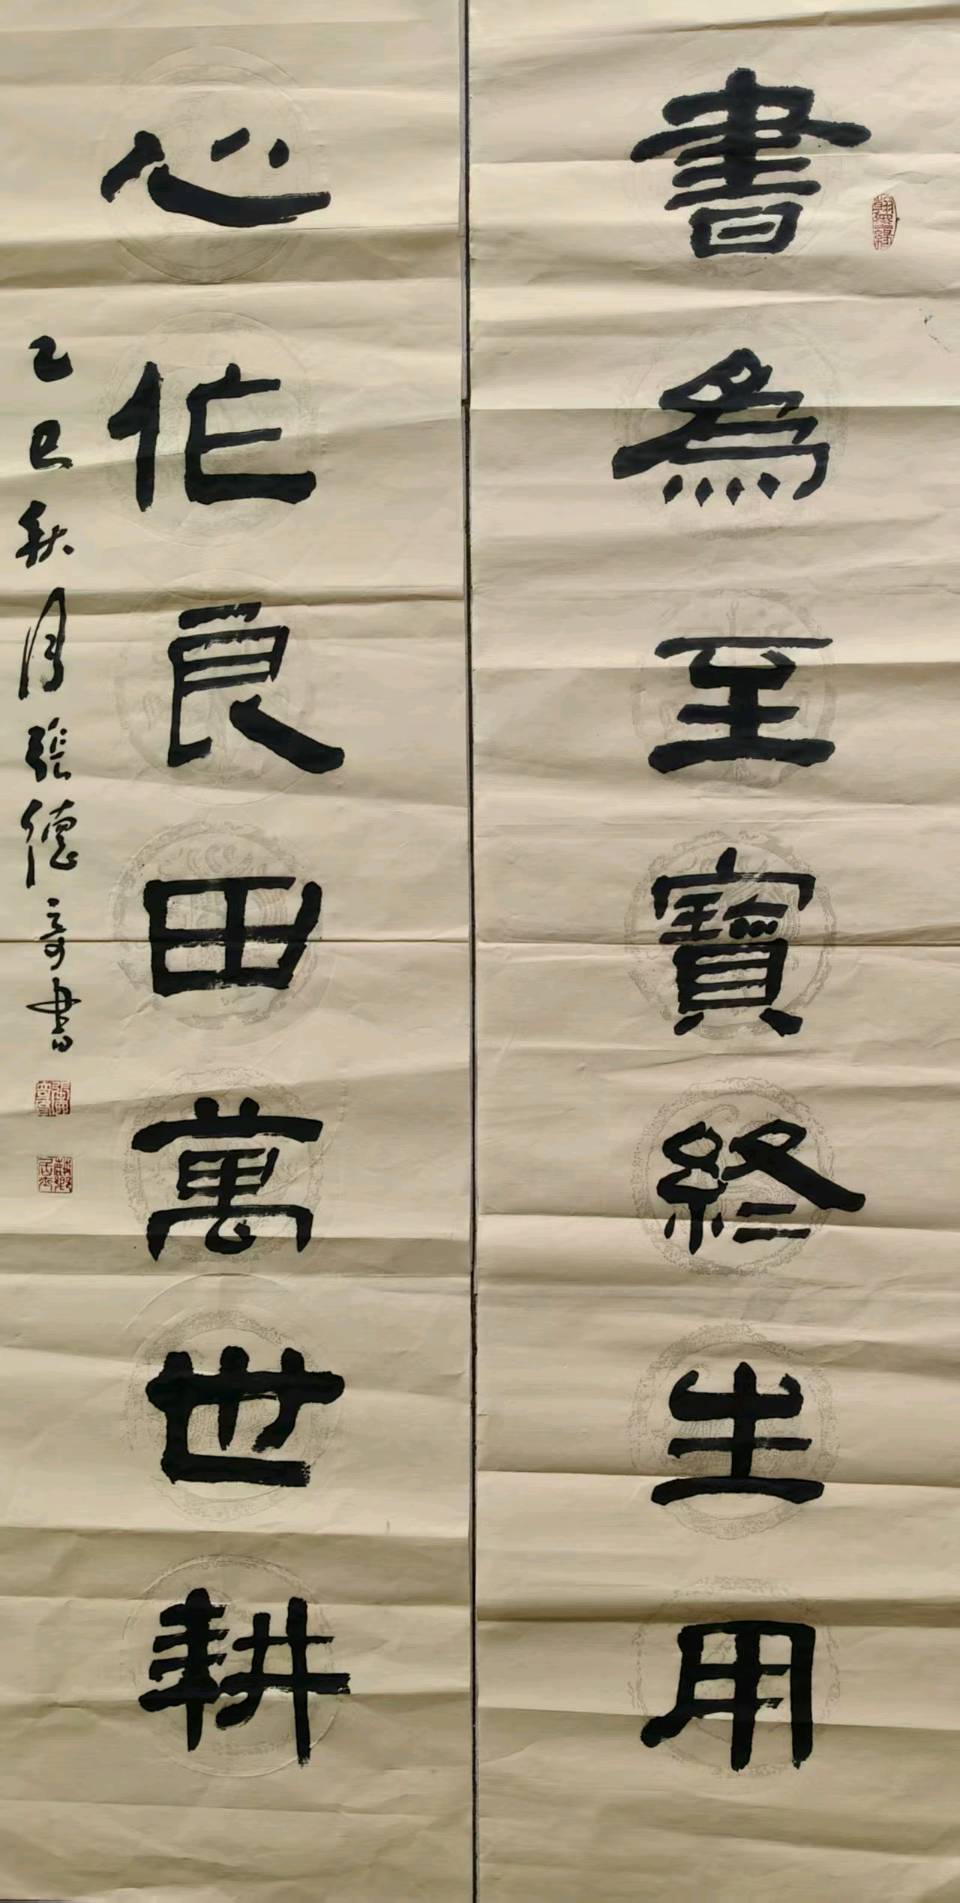 書為至寶終生用
心作良田萬世耕
乙巳秋月張德奇書